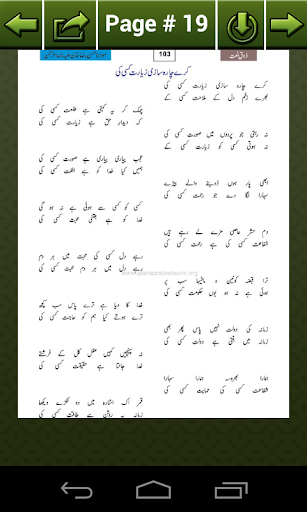 Page # 19
ذوق نعت
103
کرے چارہ سازی زیارت کسی کی
کرے چارہ سازی زیارت کسی کی
بھرے زخم دل کے ملاحت کسی کے
چمک کر یہ کہتی ہے طلعت کسی کی
کہ دیدار حق ہے زیارت کسی کی
نہ رہتی جو پردوں میں صورت کسی کی
نہ ہوتی کسی کو زیارت کسی کے
عجب پیاری پیاری ہے صورت کسی کی
ہمیں کیا خدا کو ہے الفت کسی کی
ابھی پار ہوں ڈوبنے والے بیڑے
سہارا لگا دے جو رحمت کسی کی
کسی کو کسی سے ہوئی ہے نہ ہو گی
خدا کو ہے جتنی محبت کسی کی
دم حشر عاصی مزے لے رہے ہیں
شفاعت کسی کی ہے رحمت کسی کی
رہے دل کسی کی محبت میں ہر دم
رہے دل میں ہر دم محبت کسی کی
ترا قبضہ کونین و مافیہا سب پر
ہوئی ہے نہ ہو یوں حکومت کسی کی
خدا کا دیا ہے ترے پاس سب کچھ
ترے ہوتے کیا ہم کو حاجت کسی کی
زمانہ کی دولت نہیں پاس پھر بھی
زمانہ میں بٹتی ہے دولت کسی کی
نہ پہنچیں کبھی عقل کل کے فرشتے
خدا جانتا ہے حقیقت کسی کی
ہمارا بھروسہ ہمارا سہارا
شفاعت کسی کی حمایت کسی کی
قمر اک اشارہ میں دو ٹکڑے دیکھا
زمانہ پہ روشن ہے طاقت کسی کی